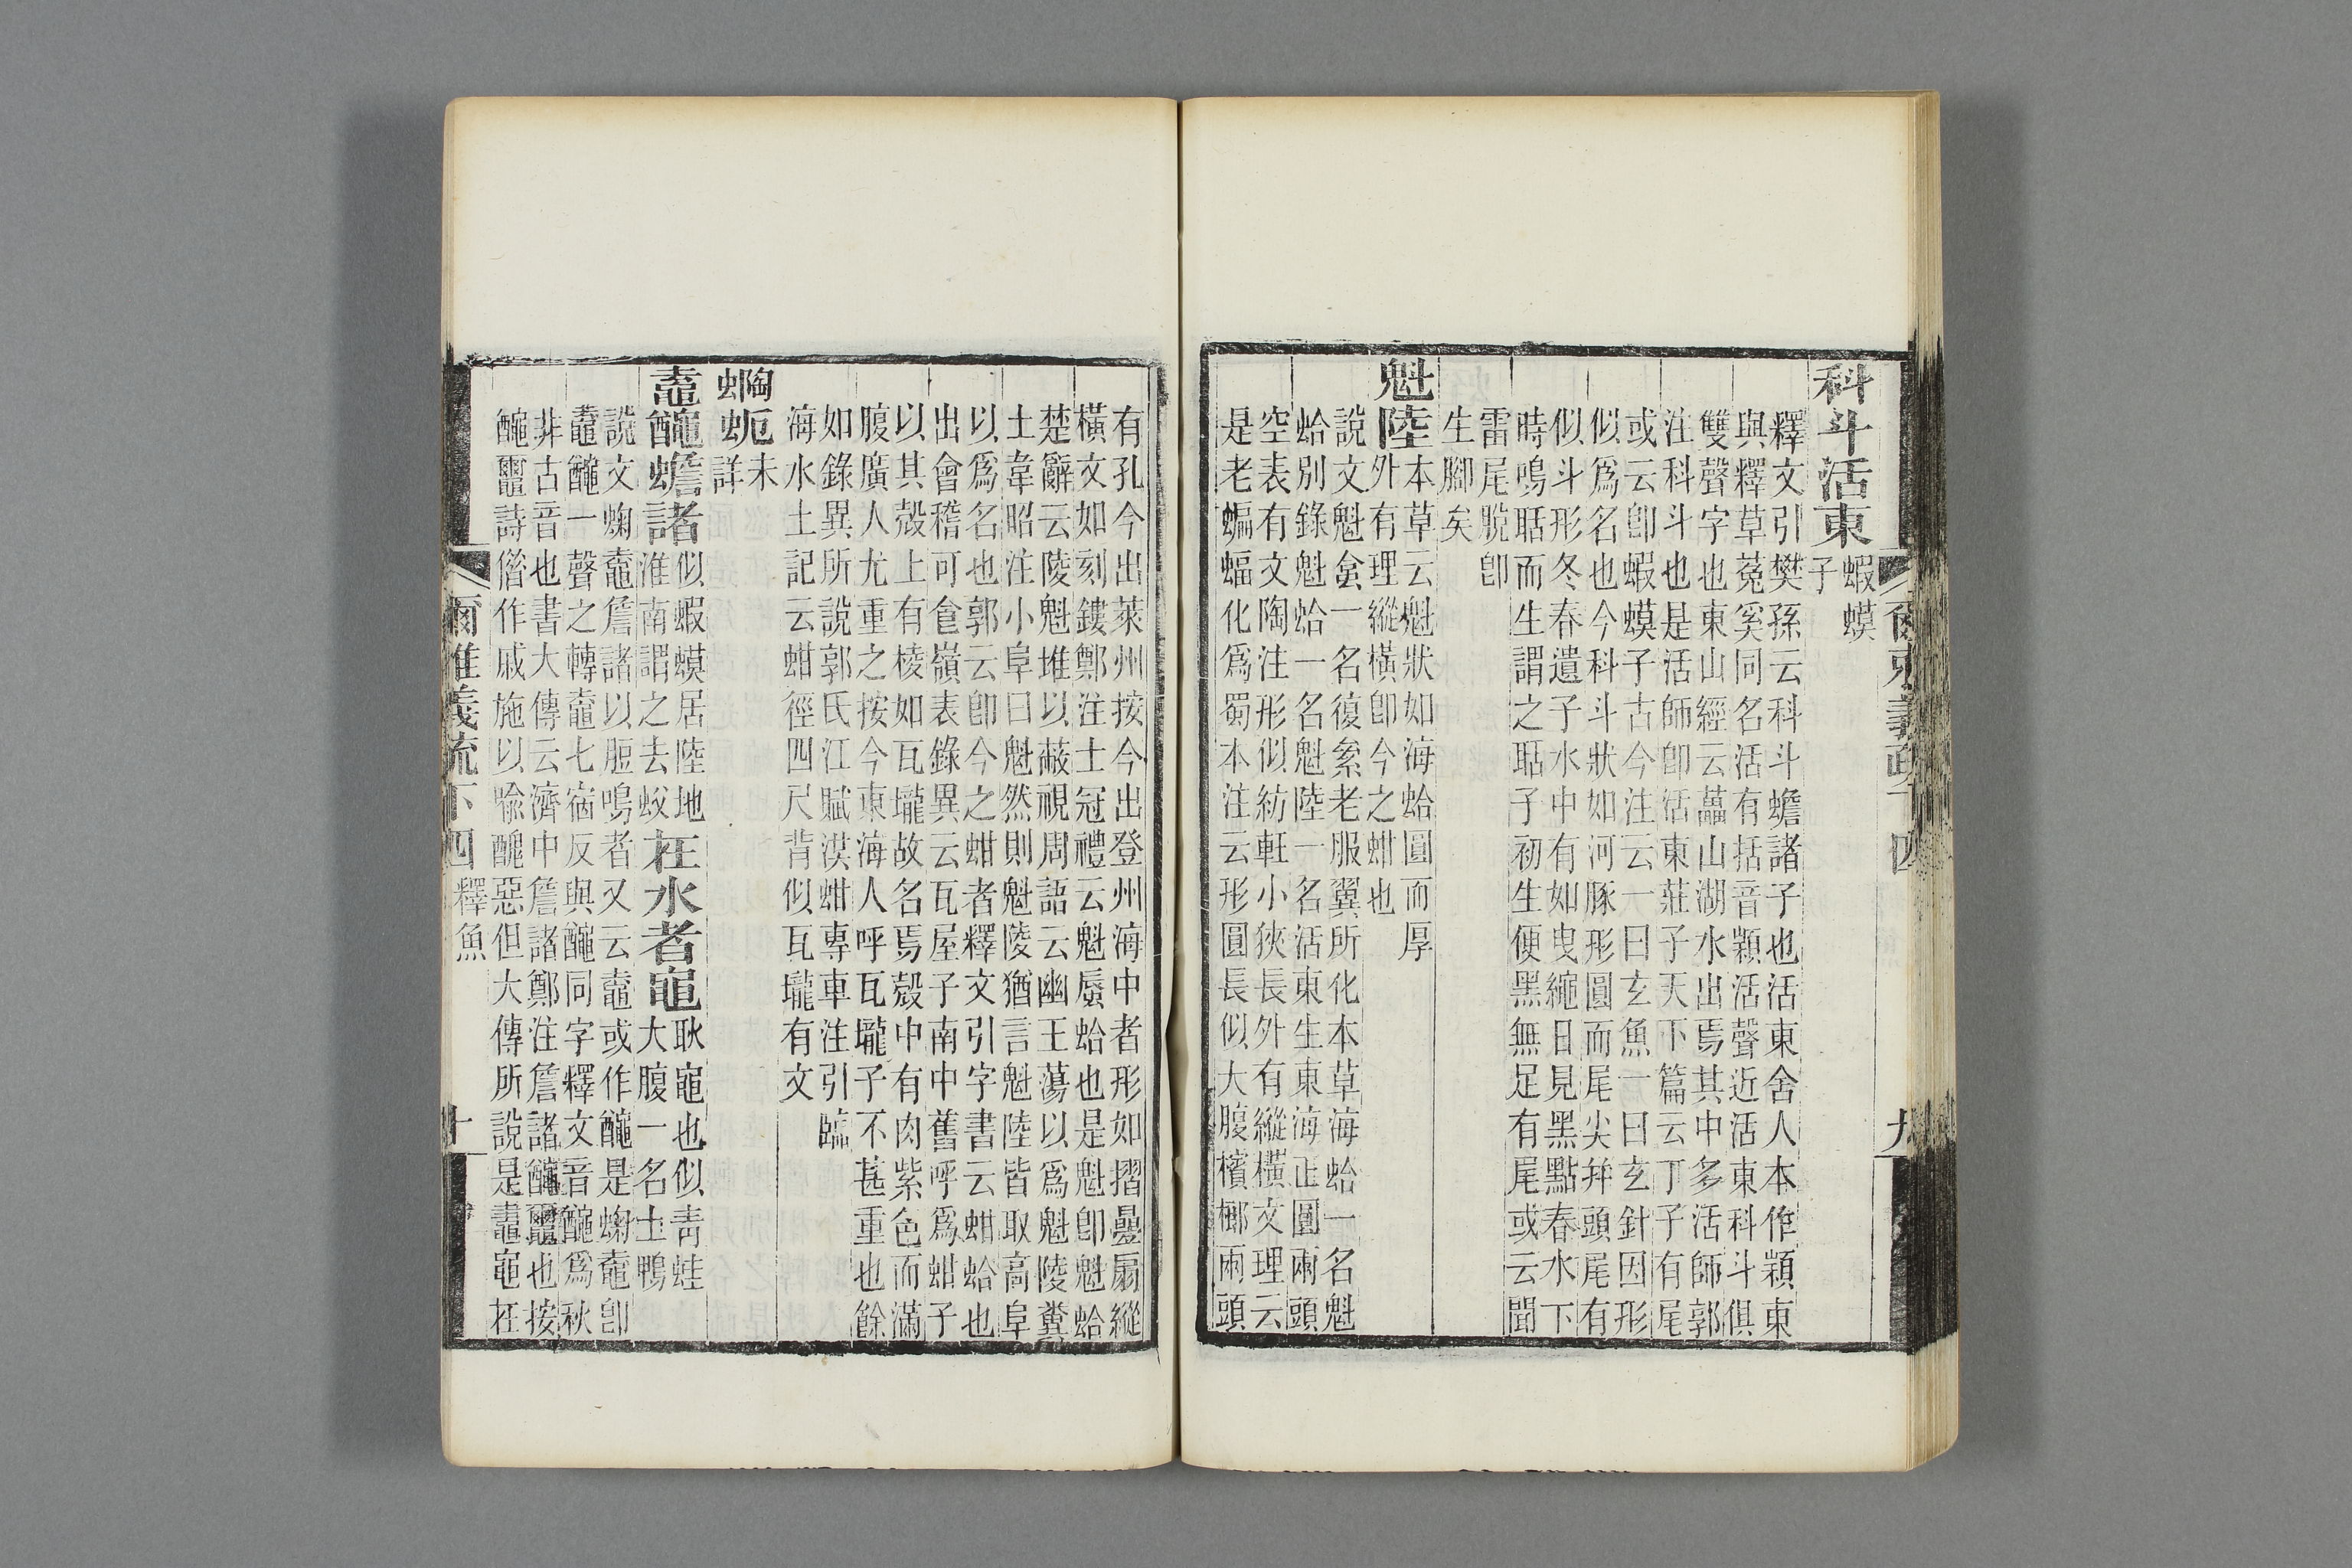 爾雅義疏下四 九
科斗活東蝦蟆
子
釋文引樊孫云科斗蟾諸子也活東舍人本作顆東
與釋草菟奚同名活有括音顆活聲近活東科斗俱
雙聲字也東山經云藟山湖水出焉其中多活師郭
注科斗也是活師卽活東莊子天下篇云丁子有尾
或云卽蝦蟆子古今注云一曰玄魚一曰玄針因形
似爲名也今科斗狀如河豚形圓而尾尖幷頭尾有
似斗形冬春遺子水中有如曳繩日見黑點春水下
時鳴聒而生謂之聒子初生便黑無足有尾或云聞
雷尾脫卽
生腳矣
魁陸本草云魁狀如海蛤圓而厚
外有理縱橫卽今之蚶也
說文魁蛤一名復絫老服翼所化本草海蛤一名魁
蛤別錄魁蛤一名魁陸一名活東生東海正圓兩頭
空表有文陶注形似紡軠小狹長外有縱橫文理云
是老蝙蝠化爲蜀本注云形圓長似大腹檳榔兩頭
有孔今出萊州按今出登州海中者形如摺疊扇縱
橫文如刻鏤鄭注士冠禮云魁蜃蛤也是魁卽魁蛤
楚辭云陵魁堆以蔽視周語云幽王蕩以爲魁陵糞
土韋昭注小阜曰魁然則魁陵猶言魁陸皆取高阜
以爲名也郭云卽今之蚶者釋文引字書云蚶蛤也
出會稽可食嶺表錄異云瓦屋子南中舊呼爲蚶子
以其殼上有棱如瓦壠故名焉殼中有肉紫色而滿
腹廣人尤重之按今東海人呼瓦壠子不甚重也餘
如錄異所說郭氏江賦洪蚶專車注引臨
海水土記云蚶徑四尺背似瓦壠有文
蜪蚅未
詳
鼀𪓰蟾諸似蝦蟆居陸地
淮南謂之去蚥在水者黽耿黽也似靑蛙
大腹一名土鴨
說文蝍鼀詹諸以脰鳴者又云鼀或作𪓰是蝍鼀卽
鼀𪓰一聲之轉鼀七宿反與𪓰同字釋文音𪓰爲秋
非古音也書大傳云濟中詹諸鄭注詹諸𪓰鼀也按
𪓰鼀詩借作戚施以喻醜惡但大傳所說是鼃黽在
爾雅義疏下四 釋魚 十